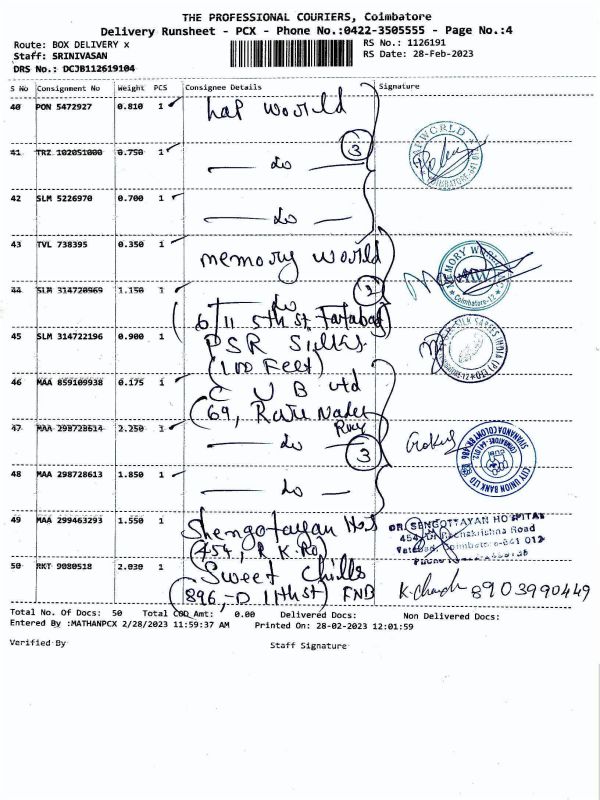 THE PROFESSIONAL COURIERS, Coimbatore
Delivery Runsheet - PCX - Phone No.:0422-3505555 - Page No.:4
Route: BOX DELIVERY x
RS No.: 1126191
Staff: SRINIVASAN
RS Date: 28-Feb-2023
DRS No.: DCJB112619104
S No Consignment No Weight PCS Consignee Details Signature
40 PON 5472927 0.810 1 Lap World
LAPWORLD
41 TRZ 102051000 0.750 1 do 3
42 SLM 5226970 0.700 1 do
43 TVL 738395 0.350 1 memory world
MEMORY WORLD
Coimbatore-12
44 SLM 314720969 1.150 1 do 2
(6/11 5th st. Tatabad)
45 SLM 314722196 0.900 1 PSR Silks
(100 Feet)
46 MAA 859109938 0.175 1 C U B Ltd
(69,
47 MAA 298728614 2.250 1 do 3
CITY UNION BANK LTD
SIVANANDA COLONY BR.
COIMBATORE-641 012
48 MAA 298728613 1.850 1 do
49 MAA 299463293 1.550 1 Shengotayan
(454, R.K. Rd)
DR. SENGOTTAYAN HOSPITAL
454, Dr. Radhakrishna Road
Tatabad, Coimbatore-641 012
50 RKT 9080518 2.030 1 Sweet Chills
(896,-D 11th st) FNB
8903990449
Total No. Of Docs: 50 Total COD Amt: 0.00 Delivered Docs: Non Delivered Docs:
Entered By :MATHANPCX 2/28/2023 11:59:37 AM Printed On: 28-02-2023 12:01:59
Verified By Staff Signature